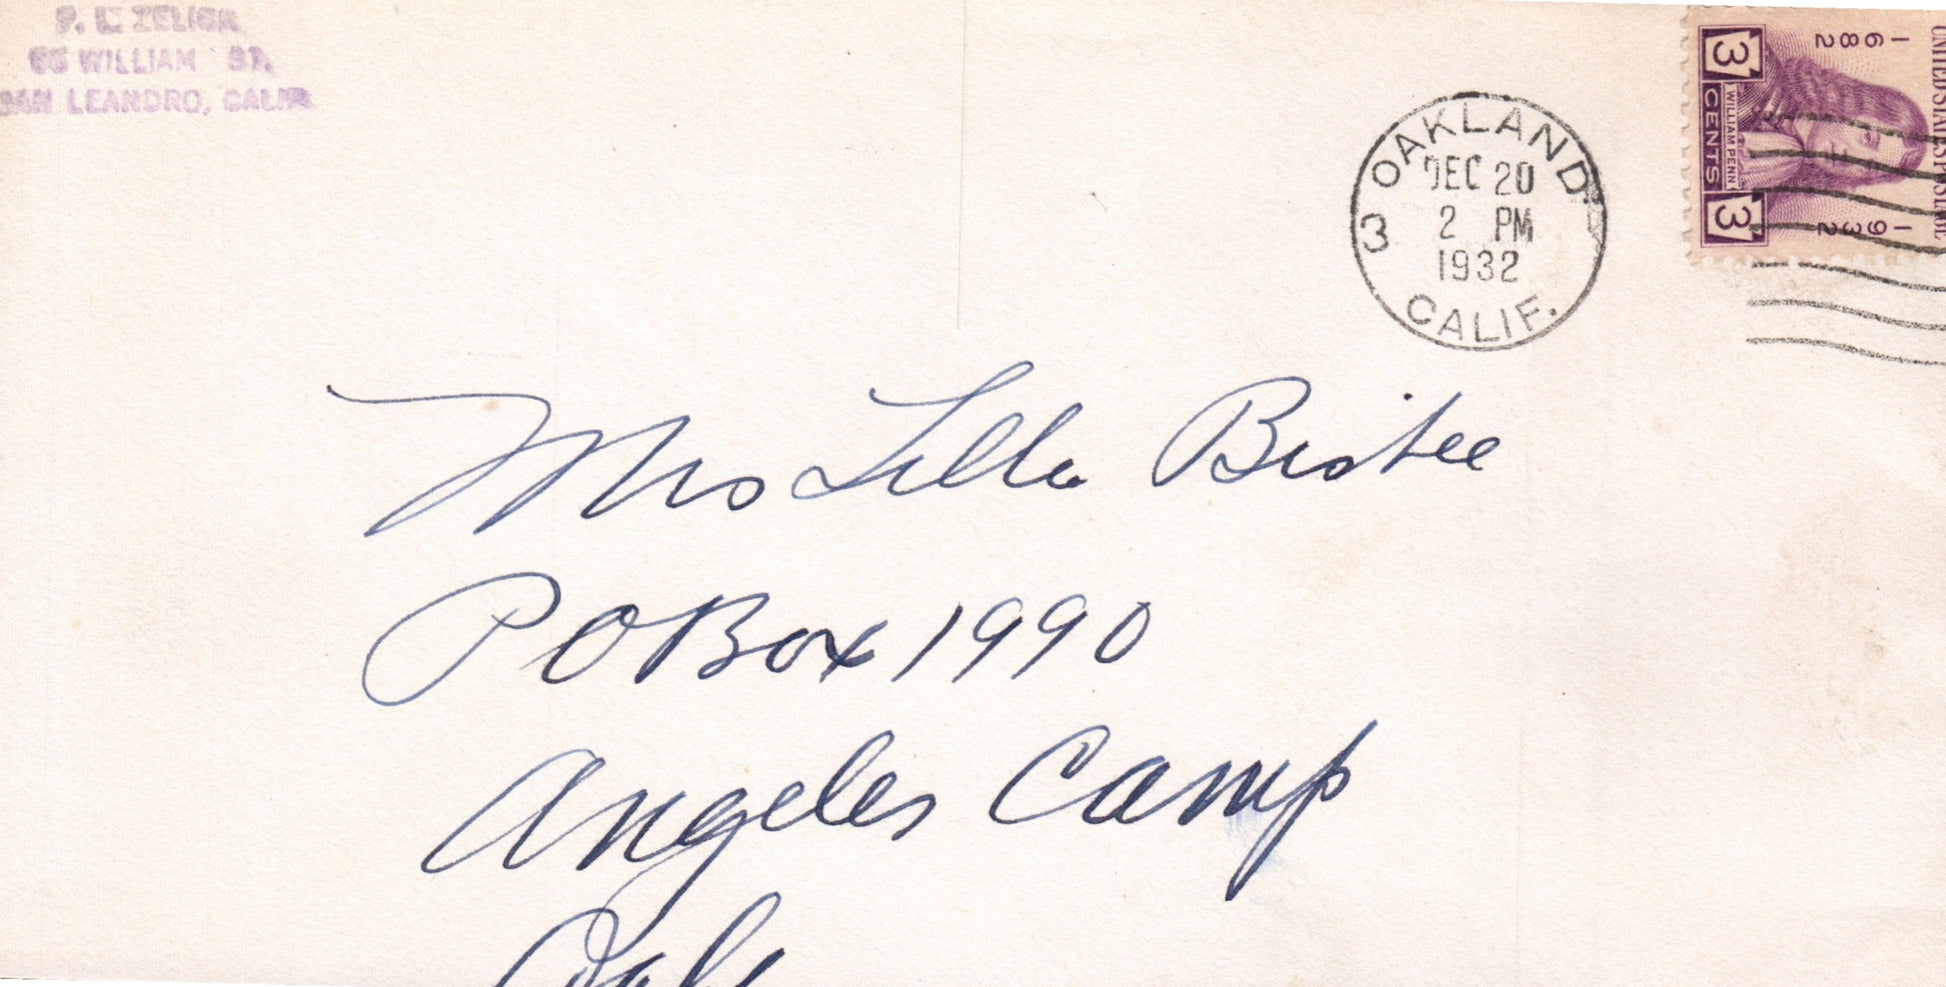 P. L. ZELICK
WILLIAM ST.
SAN LEANDRO, CALIF.
OAKLAND.
3
DEC 20
2 PM
1932
CALIF.
UNITED STATES POSTAGE
1682
1932
WILLIAM PENN
3 CENTS 3
Mrs Lilla Bisbee
PO Box 1990
Angeles Camp
Calif